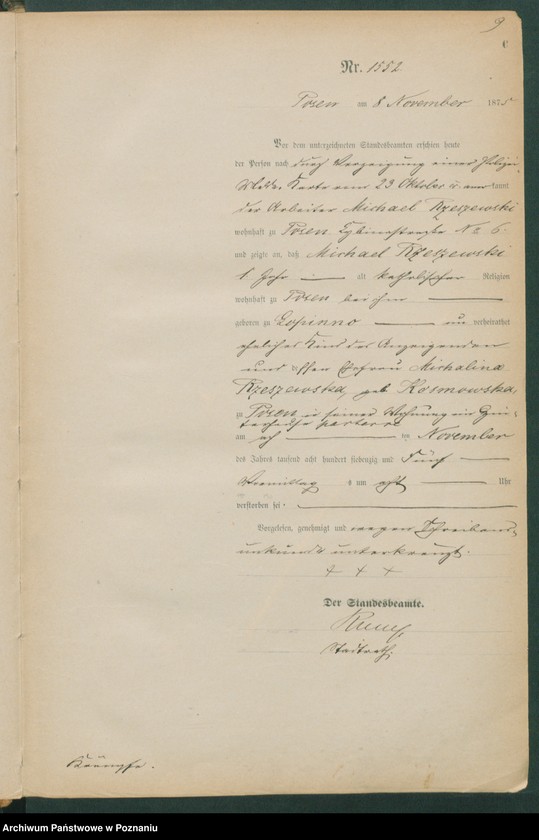 9
C
Nr. 1552
Posen am 8 November 1875
Vor dem unterzeichneten Standesbeamten erschien heute
der Person nach durch Vorzeigung einer Polizei
Melde Karte vom 23 Oktober kannt
der Arbeiter Michael Rzeszewski
wohnhaft zu Posen No 6.
und zeigte an, daß Michael Rzeszewski
1 Jahr alt katholischer Religion
wohnhaft zu Posen bei ihm
geboren zu unverheirathet
eheliches Kind des Anzeigenden
und dessen Ehefrau Michalina
Rzeszewska, geb Kosmowska,
zu Posen in seiner Wohnung im Hin-
terhause parterre
am acht ten November
des Jahres tausend acht hundert siebenzig und fünf
Vormittag s um acht Uhr
verstorben sei.
Vorgelesen, genehmigt und wegen Schreibens
unkunde unterkreuzt.
+ + +
Der Standesbeamte.
Stadtrath.
Krämpfe.
Archiwum Państwowe w Poznaniu